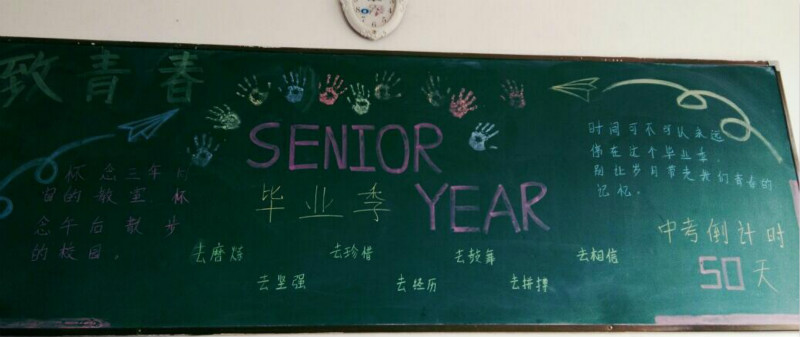 致青春
怀念三年前
窗的教室 怀
念午后散步
的校园。
SENIOR
毕业季 YEAR
去磨炼
去坚强
去珍惜
去经历
去鼓舞
去拼搏
去相信
时间可不可以永远
停在这个毕业季。
别让岁月带走我们青春的
记忆。
中考倒计时
50天